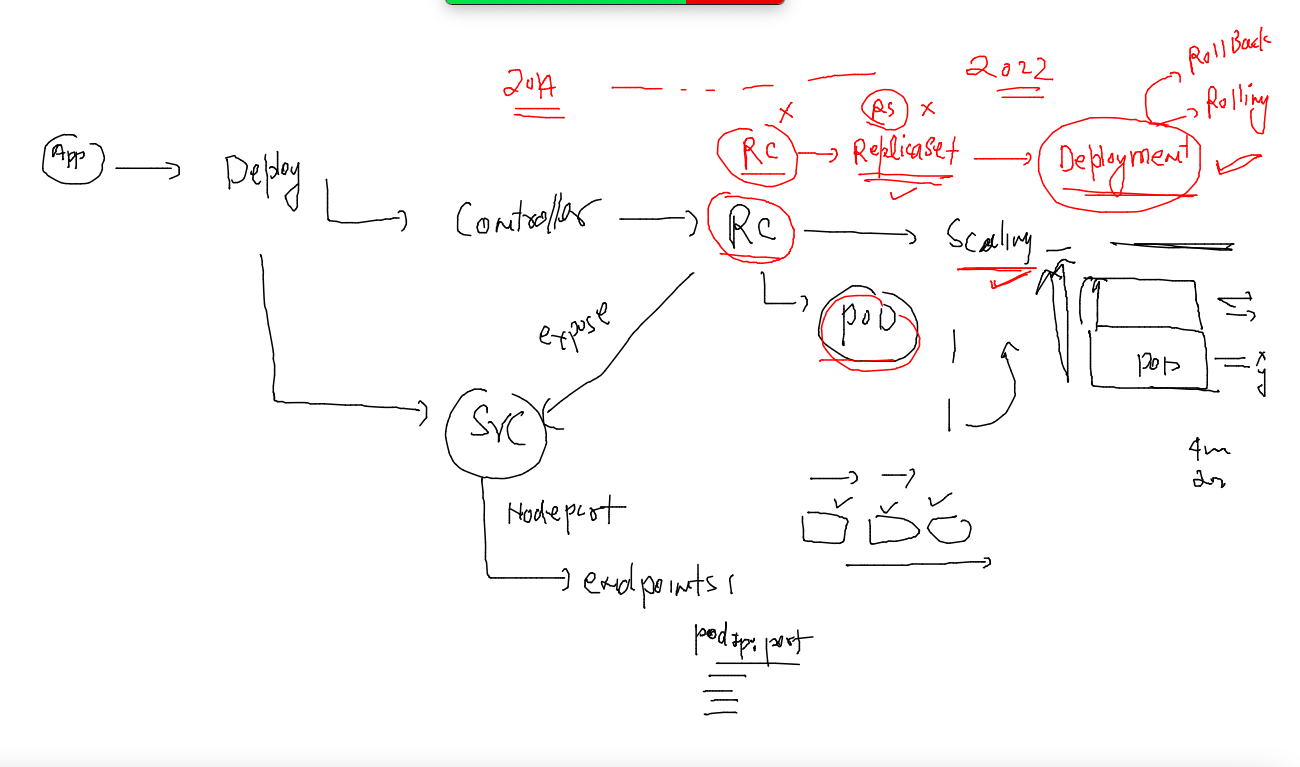 2022
RollBack
Rolling
RS
x
x
RC
ReplicaSet
Deployment
App
Deploy
Controller
RC
Scaling
expose
POD
POD
x
y
SVC
4m
Nodeport
endpoints